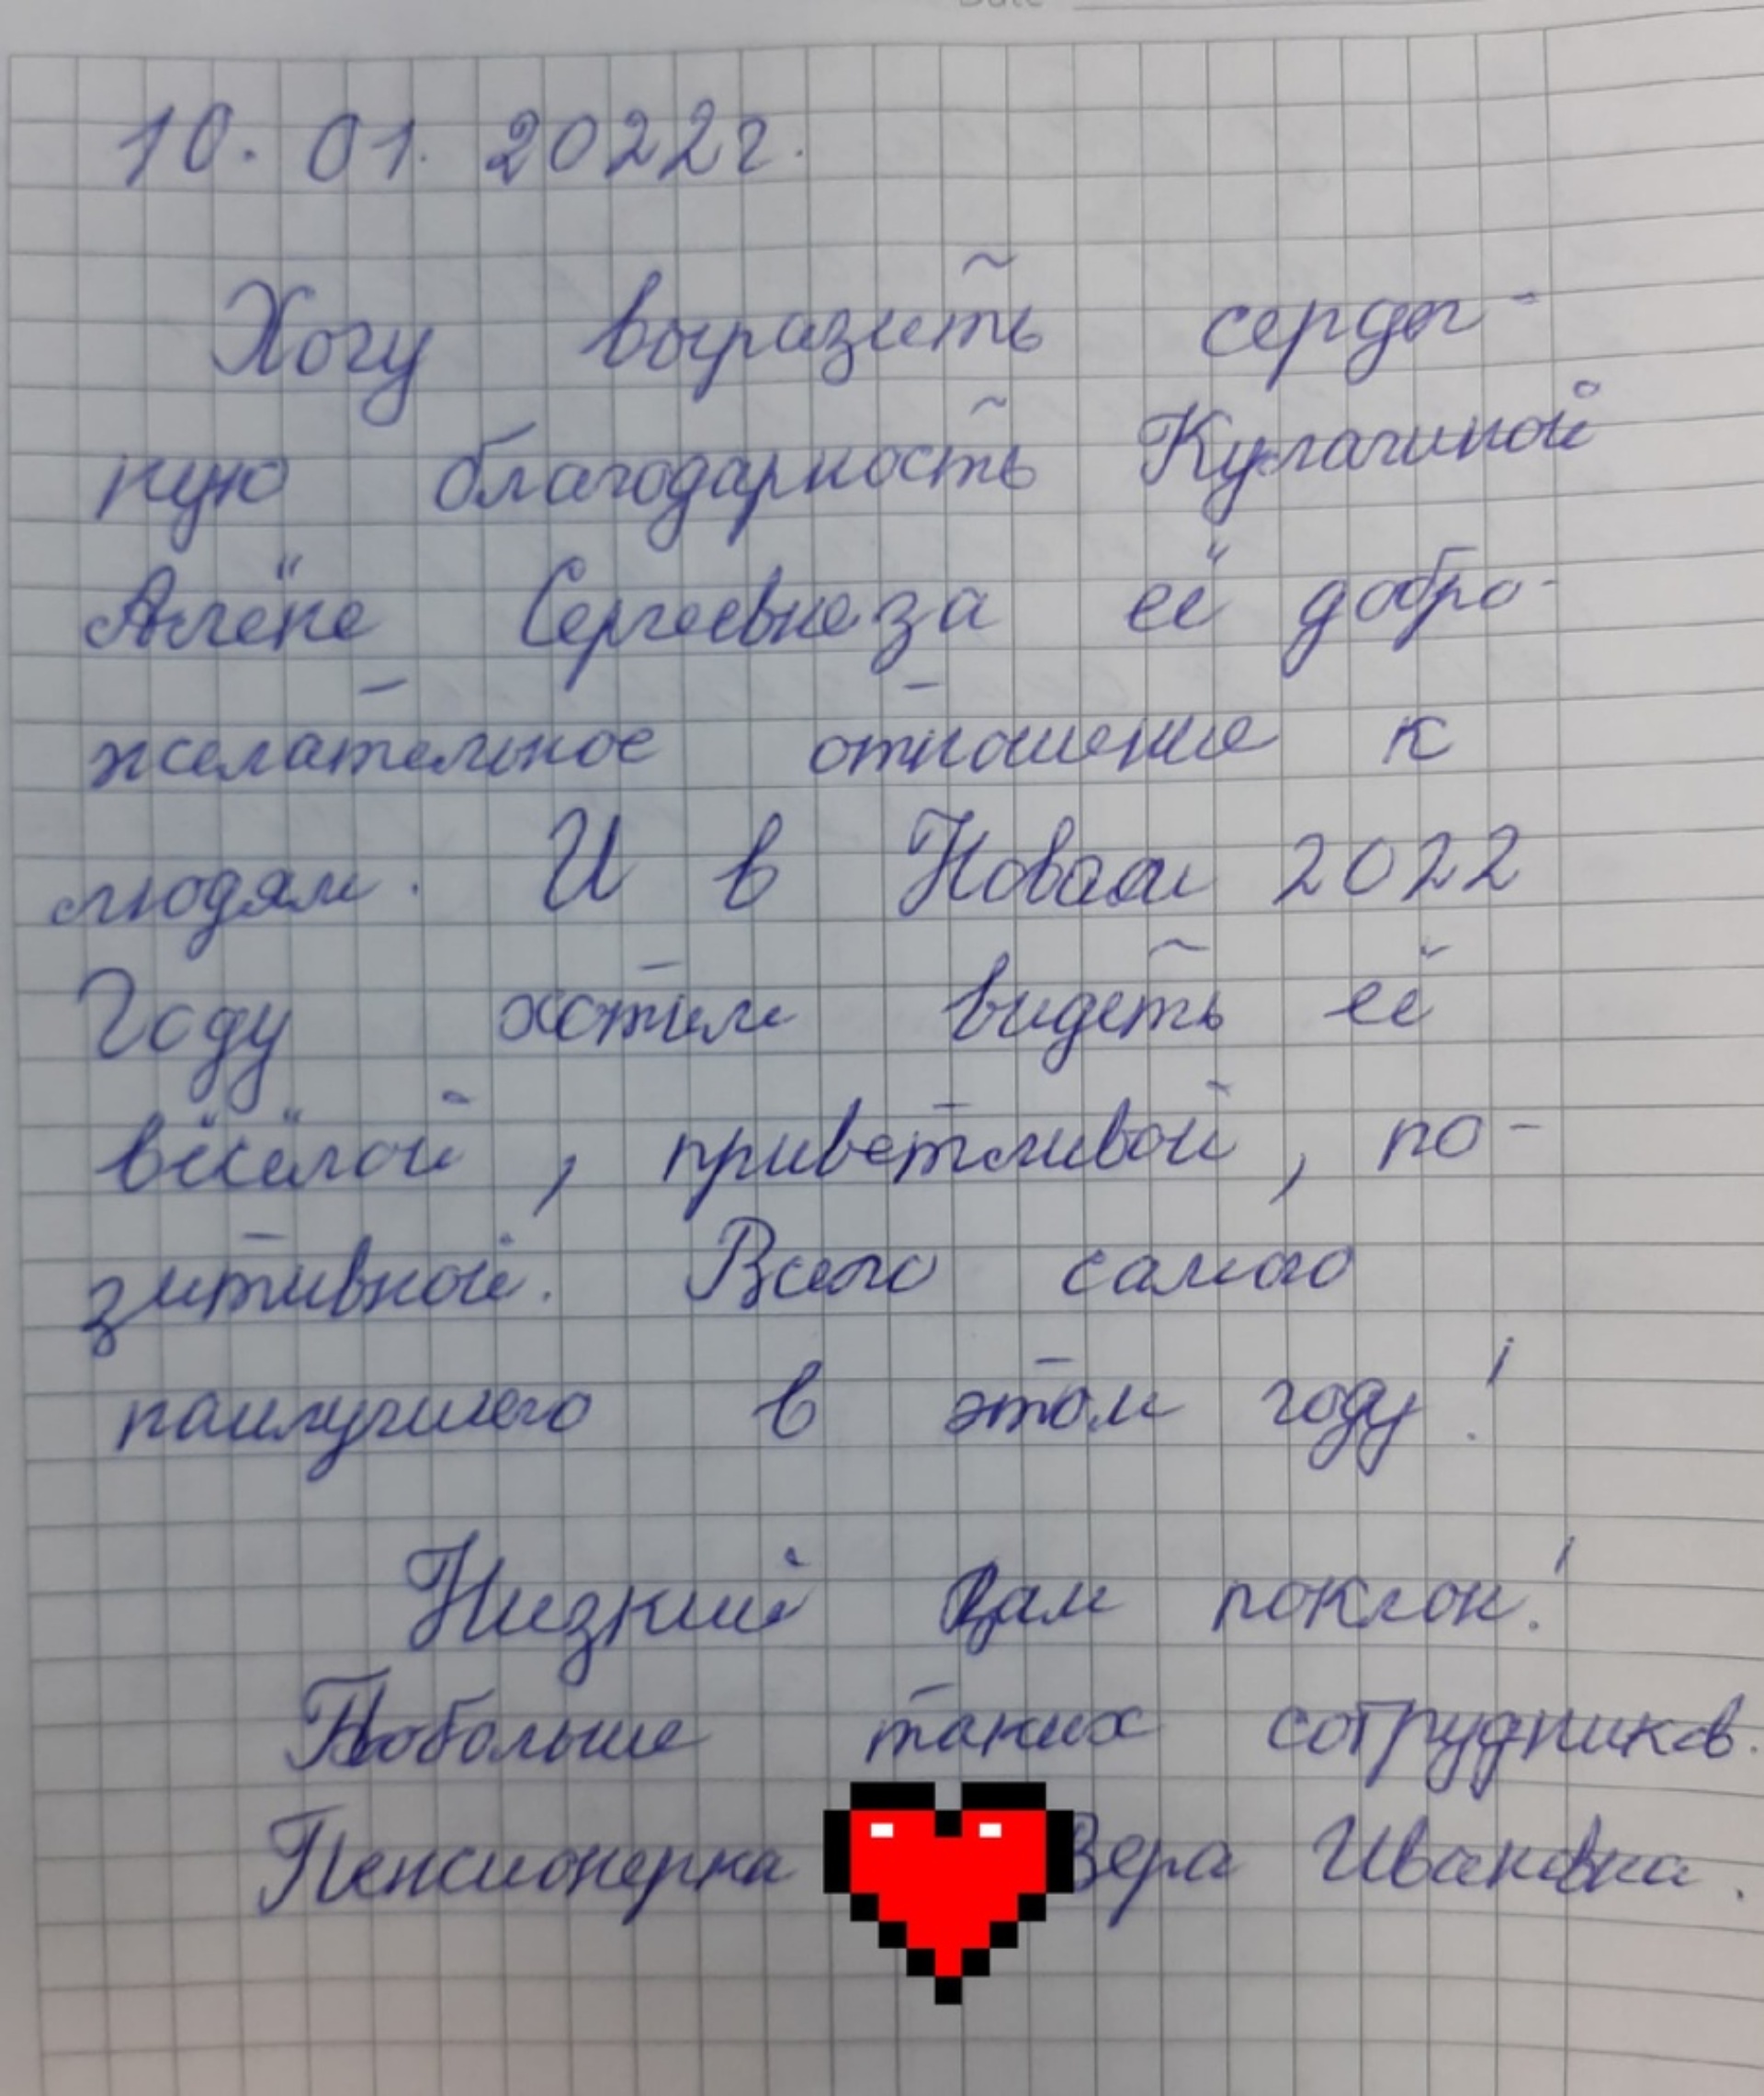 10. 01. 2022г.
Хочу выразить сердеч-
ную благодарность Кулагиной
Алёне Сергеевне за её добро-
желательное отношение к
людям. И в Новом 2022
Году хотим видеть её
вёсёлой, приветливой, по-
зитивной. Всего самого
наилучшего в этом году!
Низкий Вам поклон!
Побольше таких сотрудников.
Пенсионерка Вера Ивановна.